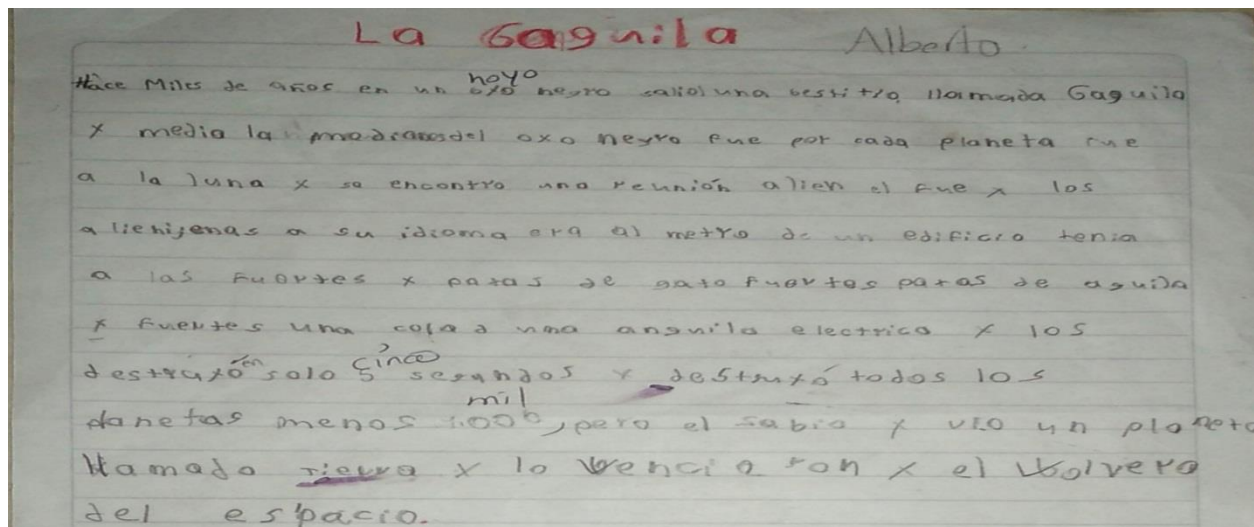 La Gaguila Alberto.
Hace Miles de años en un hoyo negro salio una bestia llamada Gaguila
x media la del oxo negro fue por cada planeta fue
a la luna x se encontro una reunión alien el fue x los
alienijenas a su idioma era al metro de un edificio tenia
a las Fuertes x patas de gato fuertes patas de aguila
x Fuertes una cola d una anguila electrica x los
destruxó en solo cinco segundos x destruxó todos los
planetas menos mil, pero el sabio x vio un planeta
llamado tierra x lo vencieron x el volvera
del espacio.